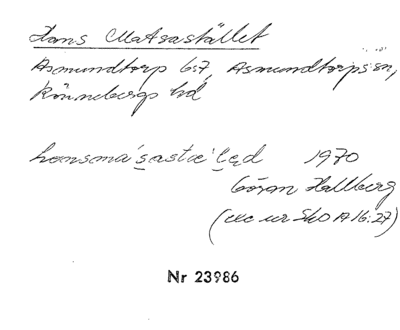 Hans Matsastället
Asmundtorp 6:7, Asmundtorps sn,
Rönnebergs hd
hansmá's̱astæ'ḻęd 1970
Göran Hallberg
(exc ur SkO A16:27)
Nr 23986